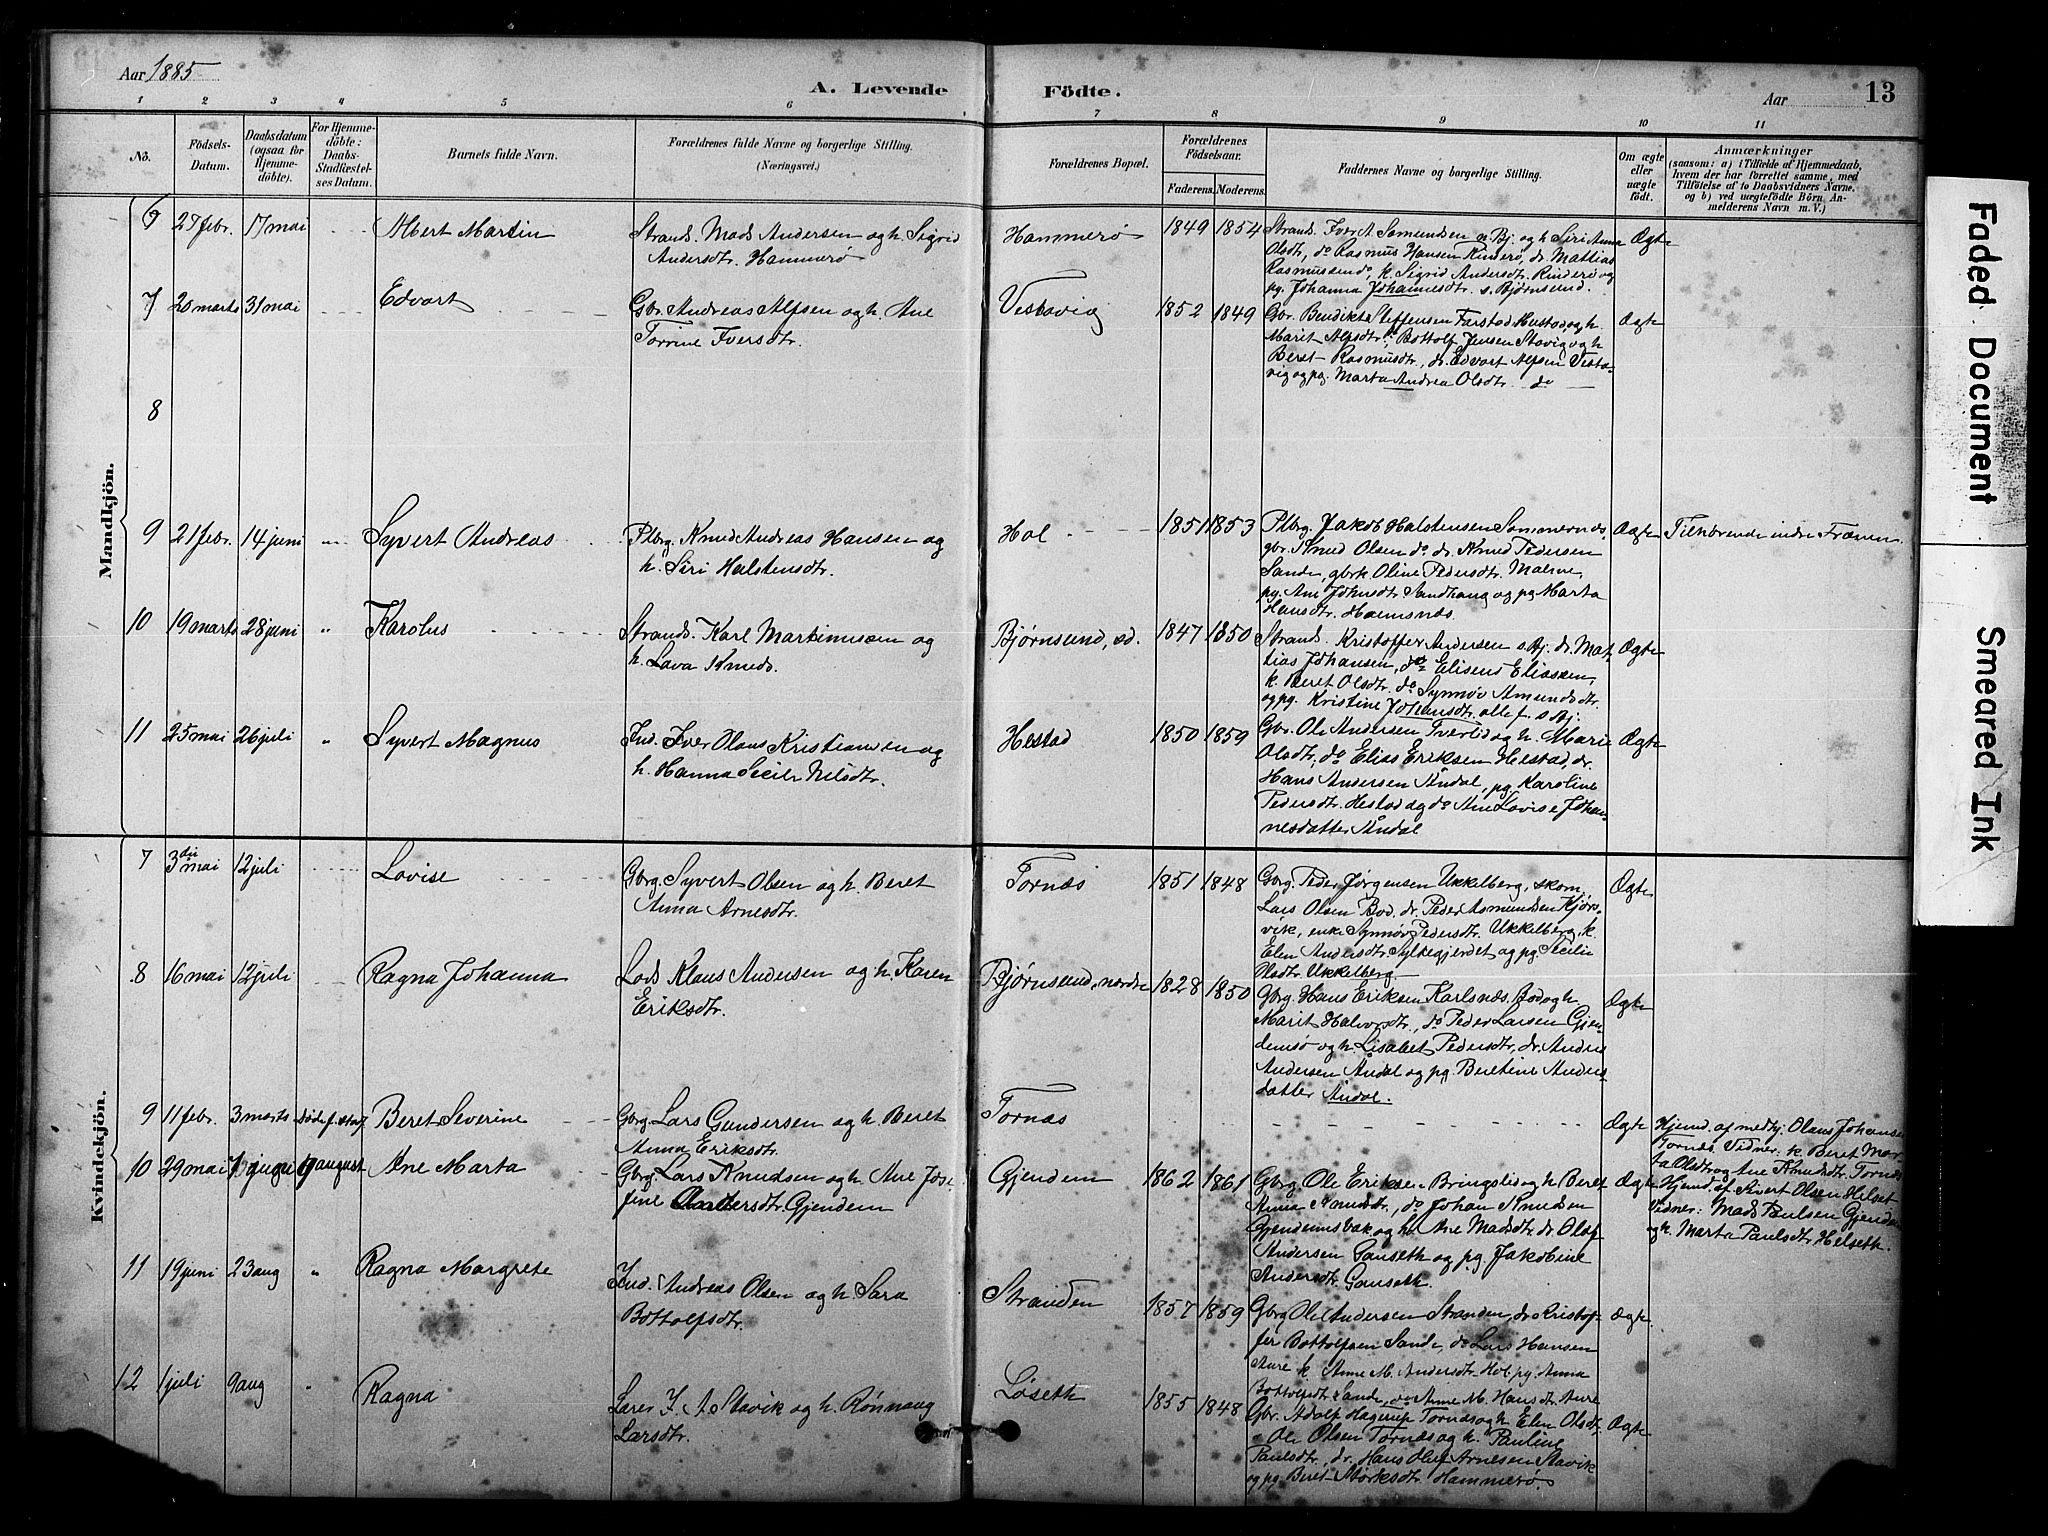 Aar 1885
A. Levende Födte.
Aar 13
1 2 3 4 5 6 7 8 9 10 11
No.
Födsels-Datum.
Daabsdatum (ogsaa for Hjemme-döbte).
For Hjemme-döbte: Daabs-Stadfæstel-ses Datum.
Barnets fulde Navn.
Forældrenes fulde Navne og borgerlige Stilling. (Næringsvei.)
Forældrenes Bopæl.
Forældrenes Födselsaar.
Faderens. Moderens.
Faddernes Navne og borgerlige Stilling.
Om ægte eller uægte födt.
Anmærkninger
(saasom: a) i Tilfælde af Hjemmedaab,
hvem der har forrettet samme, med
Tilföielse af to Daabsvidners Navne.
og b) ved uægtefödte Börn An-
melderens Navn m. V.)
Mandkjön.
6 27 febr. 17 mai Albert Martin
Strands. Mads Andersen og h. Sigrid
Andersdtr. Hammerø
Hammerø 1849 1854
Strands. Iver A. Samundsen s. Bj. og h. Siri Anna
Olsdtr, do Rasmus Hansen Rinderø, dr. Mattias
Rasmussen do, k. Sigrid Andersdtr. Rinderø og
pg. Johanna Johannesdtr. s. Bjørnsund.
Ægte
7 20 marts 31 mai Edvart
Gbr. Andreas Alfsen og h. Ane
Torine Iversdtr.
Vestavig 1852 1849
Gbr. Bendikt Steffensen Farstad Hustad, og h.
Marit Alfsdtr, do Bottolf Jensen Stavig og h
Beret Rasmusdtr, dr. Edvart Alfsen Vesta-
vig og pg. Marta Andrea Olsdtr. do
Ægte
8
9 21 febr. 14 juni Syvert Andreas
Plbrg. Knud Andreas Hansen og
h. Siri Halstensdtr.
Hol 1851 1853
Plbrg. Jakob Halstensen Sommernes,
gbr. Knud Olsen do, dr. Knud Pedersen
Sande, gbrk. Oline Pedersdtr. Malme,
pg. Ane Johnsdtr. Sandhaug og pg. Marta
Hansdtr. Haemsnæs.
Ægte Tilhørende indre Frænen.
10 19 marts 28 juni Karolus
Strands. Karl Martinussen og
h. Lava Knuds.
Bjørnsund, sd. 1847 1850
Strands. Kristoffer Andersen s. Bj. dr. Mat-
tias Johansen, do Elisens Eliassen,
k. Beret Olsdtr. do Synnøv Amundsdtr.
og pg. Kristine Johansdtr. alle f. s. Bj.
Ægte
11 25 mai 26 juli Syvert Magnus
Ind. Iver Olaus Kristiansen og
h. Hanna Secile Nilsdtr.
Hestad 1850 1859
Gbr. Ole Andersen Tverlid og h. Marie
Olsdtr, do Elias Eriksen Hestad, dr.
Hans Andersen Aandal, pg. Karoline
Pedersdtr. Hestad og do Ane Lovise Johan-
nesdatter Aandal
Ægte
Kvindekjön.
7 3die mai 12 juli Lovise
Gbrg. Syvert Olsen og h. Beret
Anna Arnesdtr.
Tornæs 1851 1848
Gbrg. Peder Jørgensen Ukkelberg, skom.
Lars Olsen Bod. dr. Peder Asmundsen Kjørs-
vik, enke Synnøv Pedersdtr. Ukkelberg, k.
Elen Andersdtr. Sylkegjerdet og pg. Secilie
Olsdtr. Ukkelberg.
Ægte
8 16 mai 12 juli Ragna Johanna
Lods Klaus Andersen og h. Karen
Eriksdtr.
Bjørnsund, nordre 1828 1850
Gbrg. Hans Eriksen Karlsnæs. Bod og h.
Marit Halvorsdtr., do Peder Larsen Gjen-
demsø og h. Lisabet Pedersdtr, dr. Anders
Andersen Aandal og pg. Beretine Anders-
datter Aandal.
Ægte
9 11 febr. 3 marts Døde f. staf Beret Severine
Gbrg. Lars Gundersen og h. Beret
Anna Eriksdtr.
Tornæs
Ægte
Hjemd. af medhj. Olaus Johansen
Tornæs. Vidner: k. Beret Mar-
ta Olsdtr og Ane Knudsdtr. Tornæs
10 29 mai 7 juni 9 august Ane Marta
Gbrg. Lars Knudsen og h. Ane Jos-
fine Andersdtr. Gjendem
Gjendem 1862 1861
Gbrg Ole Eriksen Bringsli og h. Beret
Anna Knudsdtr., do Johan Knudsen
Gjendemsbak og h. Ane Madsdtr. dr. Olaf
Andersen Ganseth og pg. Jakobine
Andersdtr. Ganseth.
Ægte
Hjemd. af Sivert Olsen Helset
Vidner: Mads Paulsen Gjendem
og k. Marta Paulsdtr. Helseth.
11 19 juni 23 aug Ragna Margrete
Ind. Andreas Olsen og h. Sara
Bottolfsdtr.
Stranden 1857 1859
Gbrg Ole Andersen Stranden, dr. Kristof-
fer Bottolfsen Sande, do Lars Hansen
Aure k. Anne M. Andersdtr. Hol, pg. Anna
Bottolfsdtr. Sande, do Anne M. Hansdtr. Aure
Ægte
12 1 juli 9 aug Ragna
Lærer I. A. Stavik og h. Rønnaug
Larsdtr.
Løseth 1855 1848
Gbr. Adolf Hagerup Tornæs og h. Elen Olsdtr.
Ole Olsen Tornæs og h. Pauline
Paulsdtr, dr. Hans Oluf Arnesen Stavik
og pg. Beret Størksdtr. Hammerø.
Ægte
Faded Document
Smeared Ink